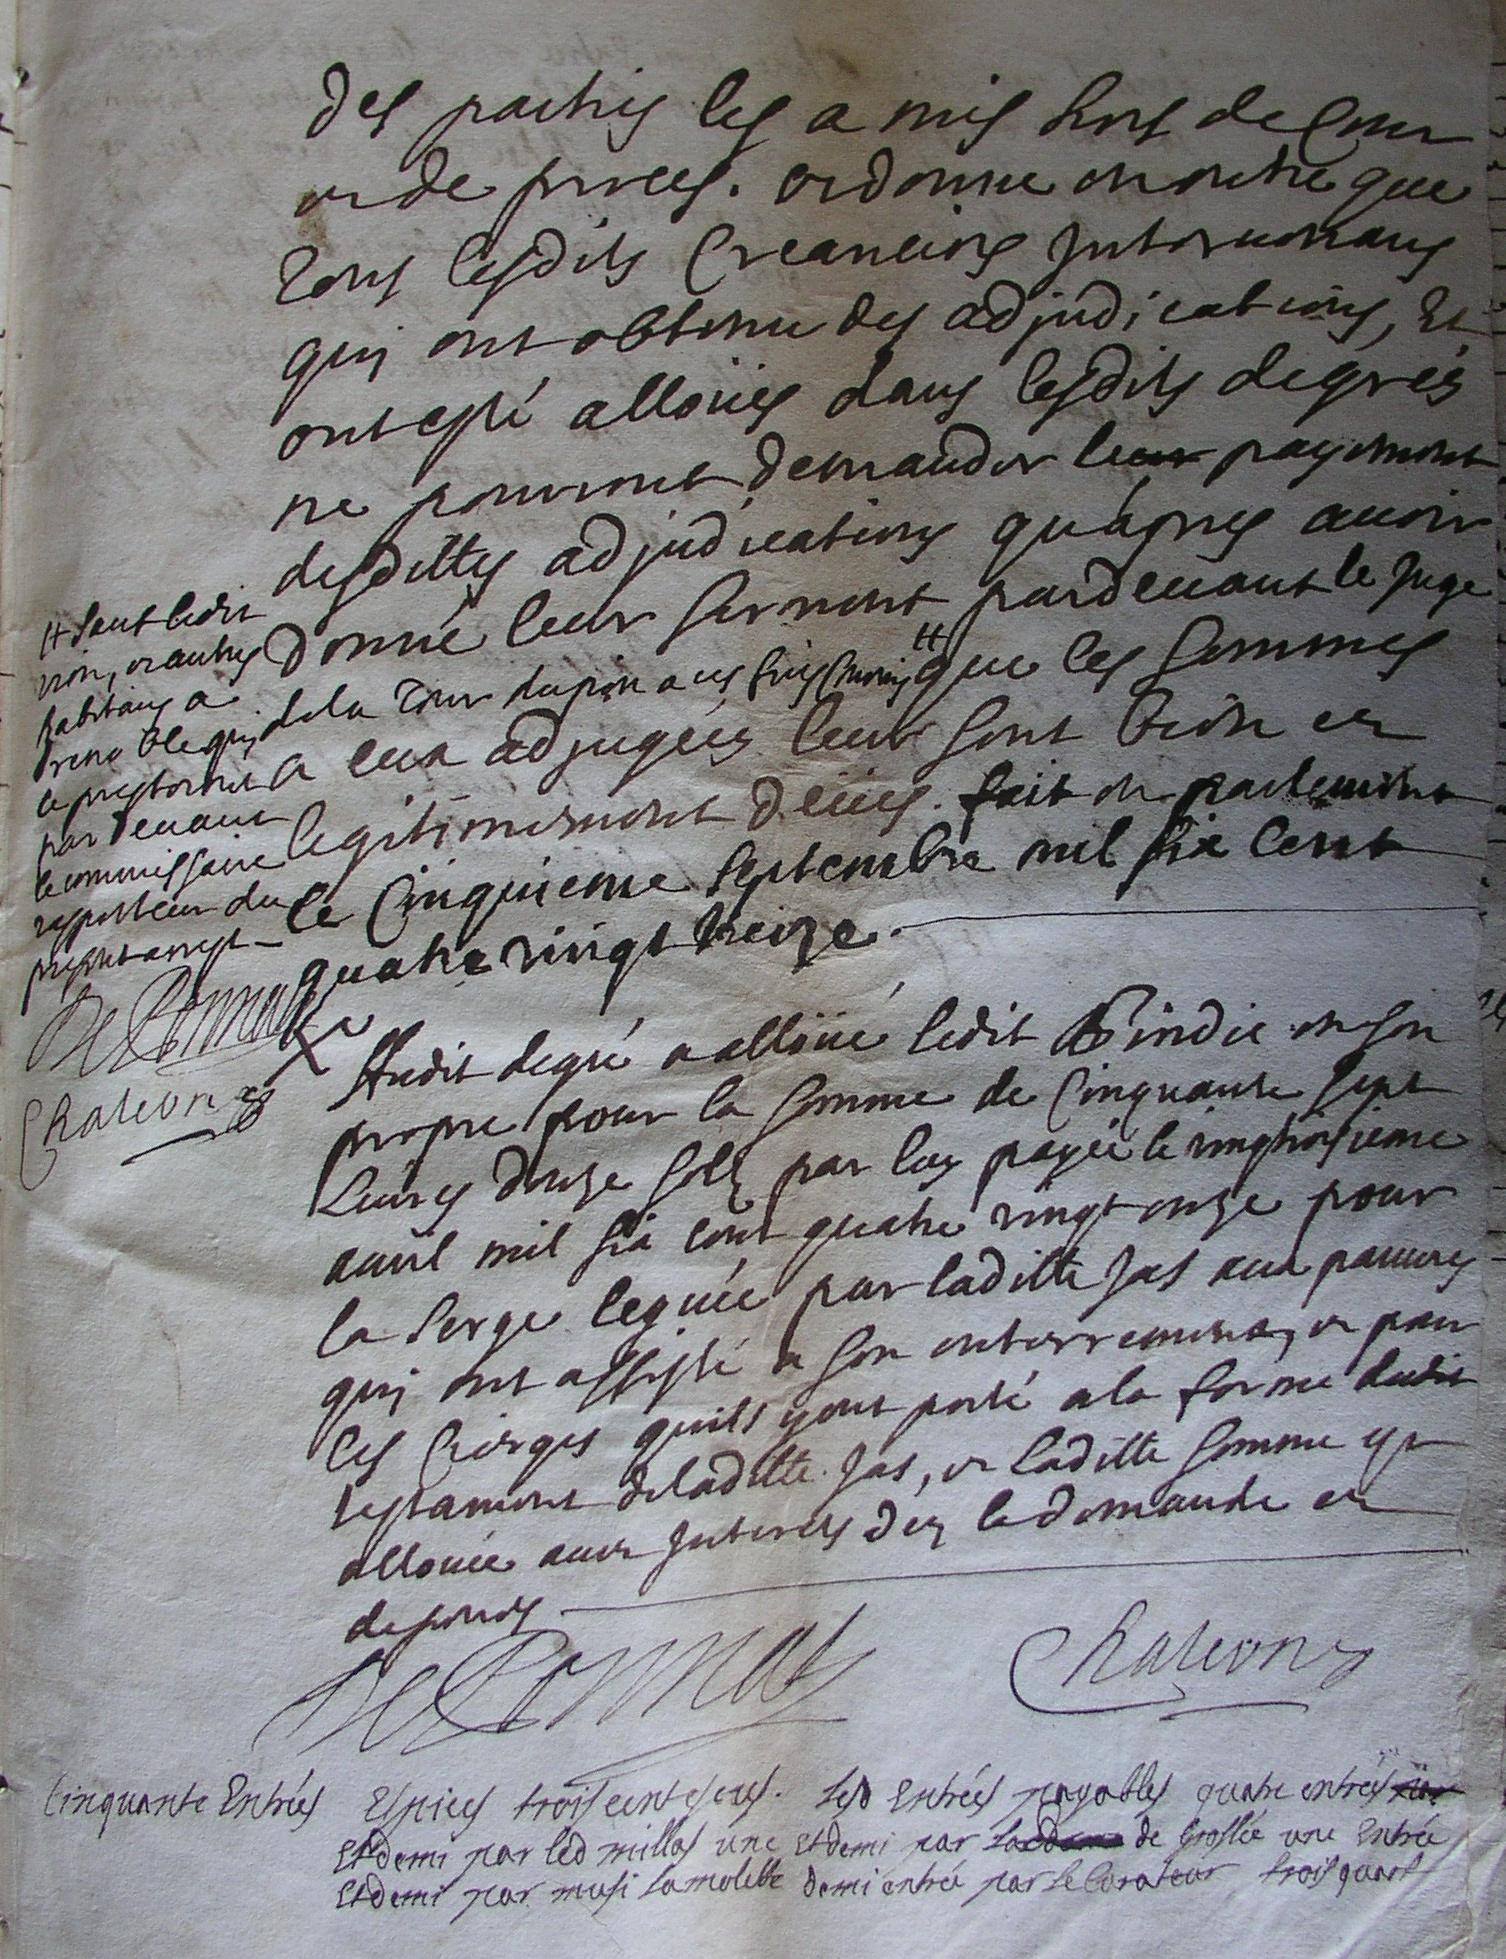 des parties les a mis hors de Cour
et de proces. ordonne en outre que
Tous lesdits Creanciers Intervenans
qui ont obtenu des adjudications, Et
ont esté alloüés dans lesdits degrés
ne pourront demander leur payement
desdittes adjudications qu'apres avoir
donné leur serment pardevant le Juge
de la Tour du pin a ces fins Commis # que les sommes
a eux adjugées leur sont bien et
legitimement deües. fait en parlement
le Cinquieme septembre mil six cent
quatre vingt treize.
# sauf ledit
et autres
habitans a
Grenoble qui
le presteront
par devant
le commissaire
rapporteur du
present arrest
Chaleon
Audit degré a alloüé ledit Bindie en son
propre pour la somme de Cinquante sept
Livres douze sols par luy payée le vingtroisieme
avril mil six cent quatre vingt onze pour
la serge leguée par laditte Jas aux pauvres
qui ont assisté a son enterrement, et pour
les Cierges quils y ont porté a la forme dudit
testament de laditte Jas, et laditte somme est
alloüée avec Interets dez la demande et
depends
Chaleon
Cinquante Entrées Espices trois cent escus. Lesd Entrées payables quatre entrées
Et demi par led millas une Et demi par de Grollée une Entrée
Et demi par musi La molette demi entrée par Le Curateur trois quart